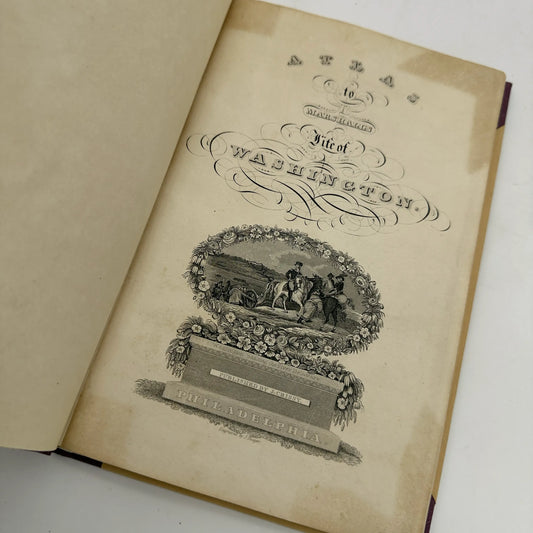 ATLAS
to
MARSHALL'S
Life of
WASHINGTON.
PUBLISHED BY J. CRISSY.
PHILADELPHIA.